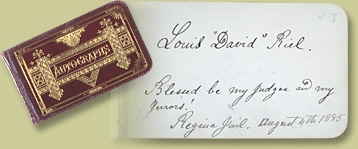 AUTOGRAPHS
Louis "David" Riel.
Blessed be my judges and my
jurors!
Regina Jail. August 4th 1885